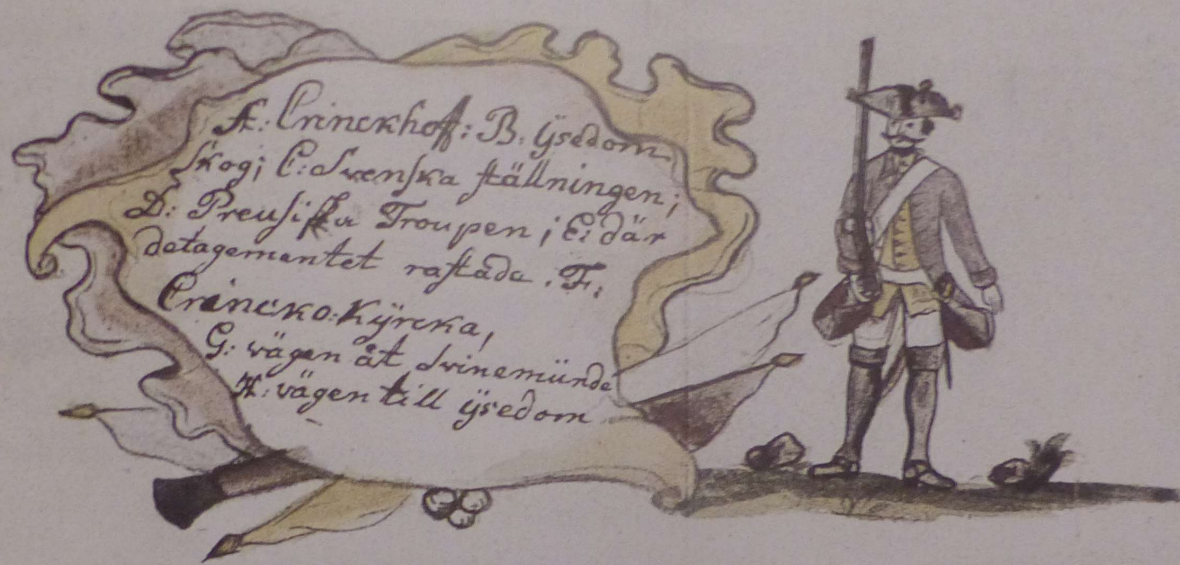 A: Crinckhoff: B. ÿsedom
skog; C: Svenska ställningen;
D: Preusiska Troupen; E: där
detagementet rastade. F:
Crincko-Kÿrcka,
G: vägen åt Svinemünde
H: vägen till ÿsedom